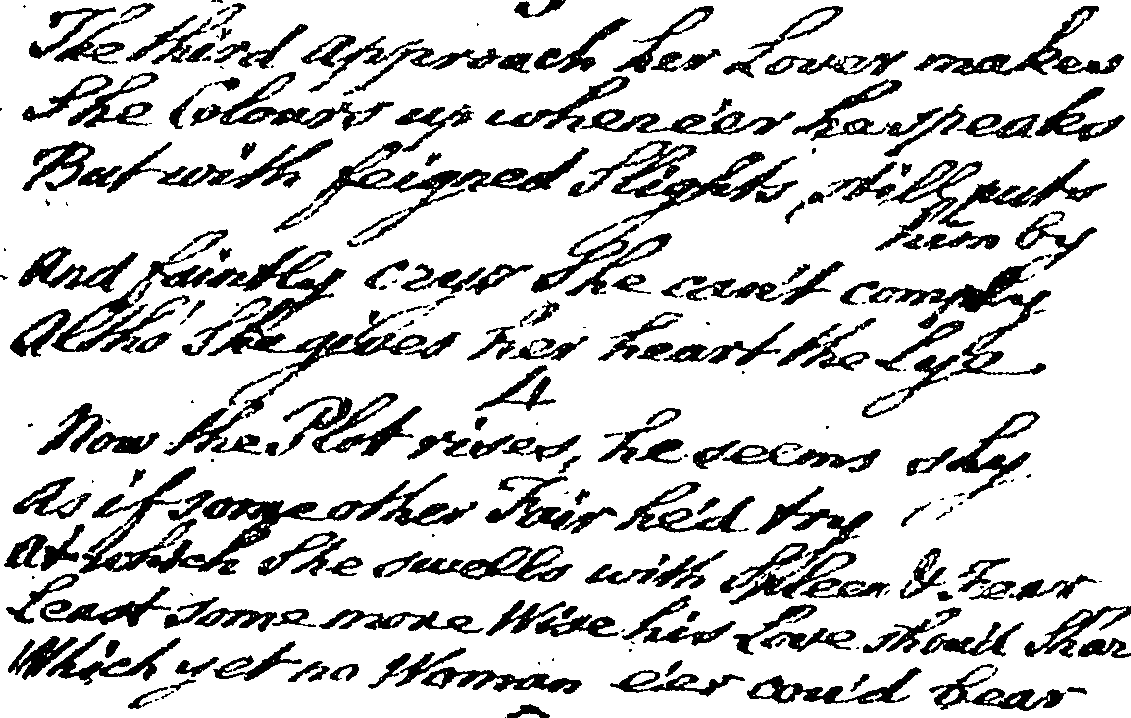 The third approach her Lover makes
She Colours up whene'er he speaks
But with feigned Slights, still puts
him by
And faintly crys She can't comply
Altho' She gives her heart the Lye.
4
Now the Plot rises, he seems shy
As if some other Fair he'd try
At which She swells with Spleen & Fear
Least some more Wise his Love shou'd Shar
Which yet no Woman e'er cou'd bear